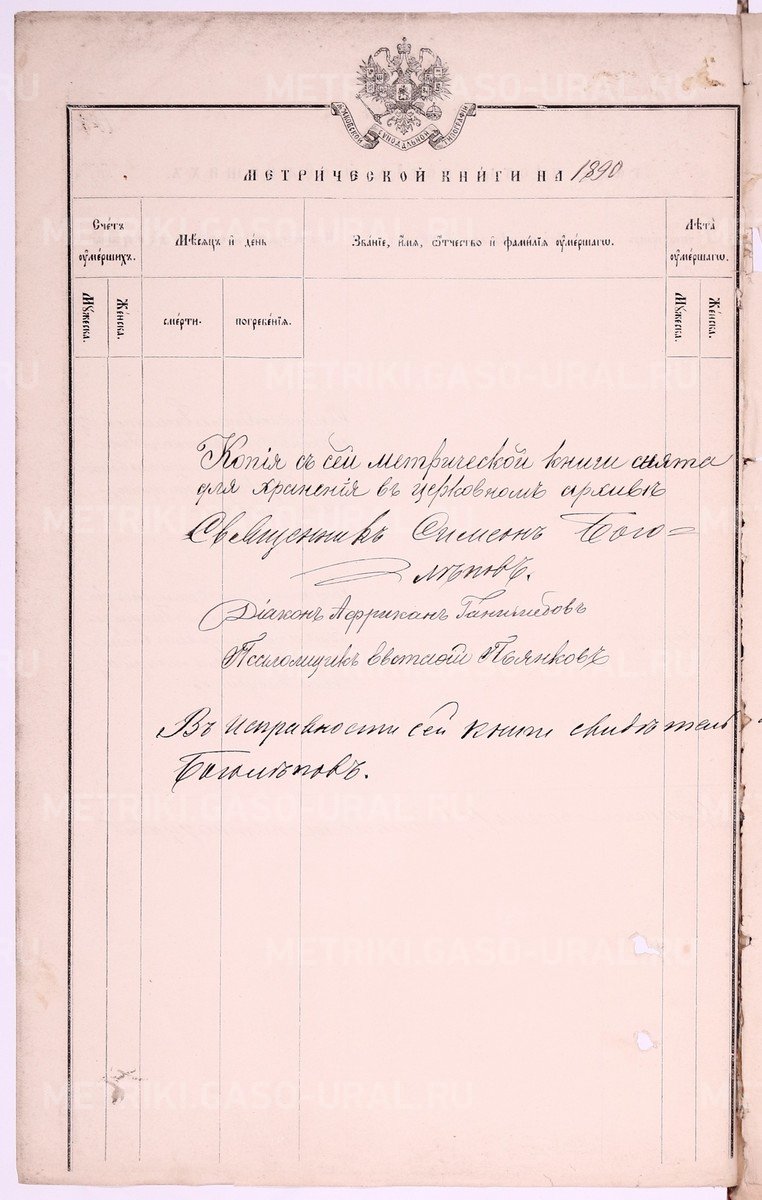 МОСКОВСКОЙ СѴНОДАЛЬНОЙ ТИПОГРАФІИ
МЕТРИ́ЧЕСКОЙ КНИ́ГИ НА 1890
Сче́тъ ᲂу҆ме́ршихъ.
Мѣ́сяцъ и҆ де́нь
Зва́нїе, и҆́мя, ѻ҆́тчество и҆ фами́лїя ᲂу҆ме́ршагѡ.
Лѣ́та ᲂу҆ме́ршагѡ.
Мꙋ́жеска.
Же́нска.
сме́рти.
погребе́нїя.
Мꙋ́жеска.
Же́нска.
Копія съ сей метрической книги снята
для храненія въ церковномъ архивѣ
Священникъ Симеонъ Бого=
лѣповъ.
Діаконъ Африканъ
Псаломщикъ Евстафій Пьянковъ
Въ исправности сей книги свидѣтель
Боголѣповъ.
METRIKI.GASO-URAL.RU